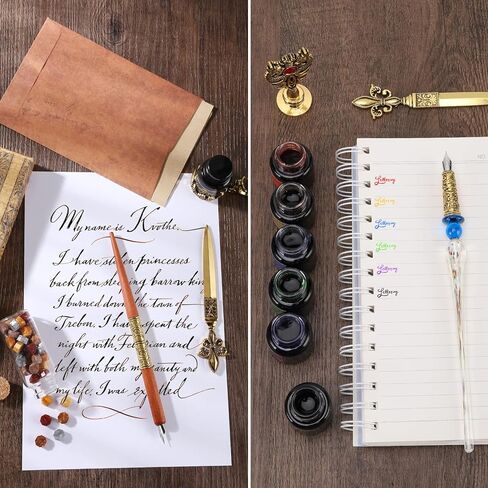 My name is Kvothe.
I have stolen princesses
back from sleeping barrow kin
I burned down the town of
Trebon. I have spent the
night with Felurian and
left with both my sanity and
my life. I was expelled
NO.
Lettering
Lettering
Lettering
Lettering
Lettering
Lettering